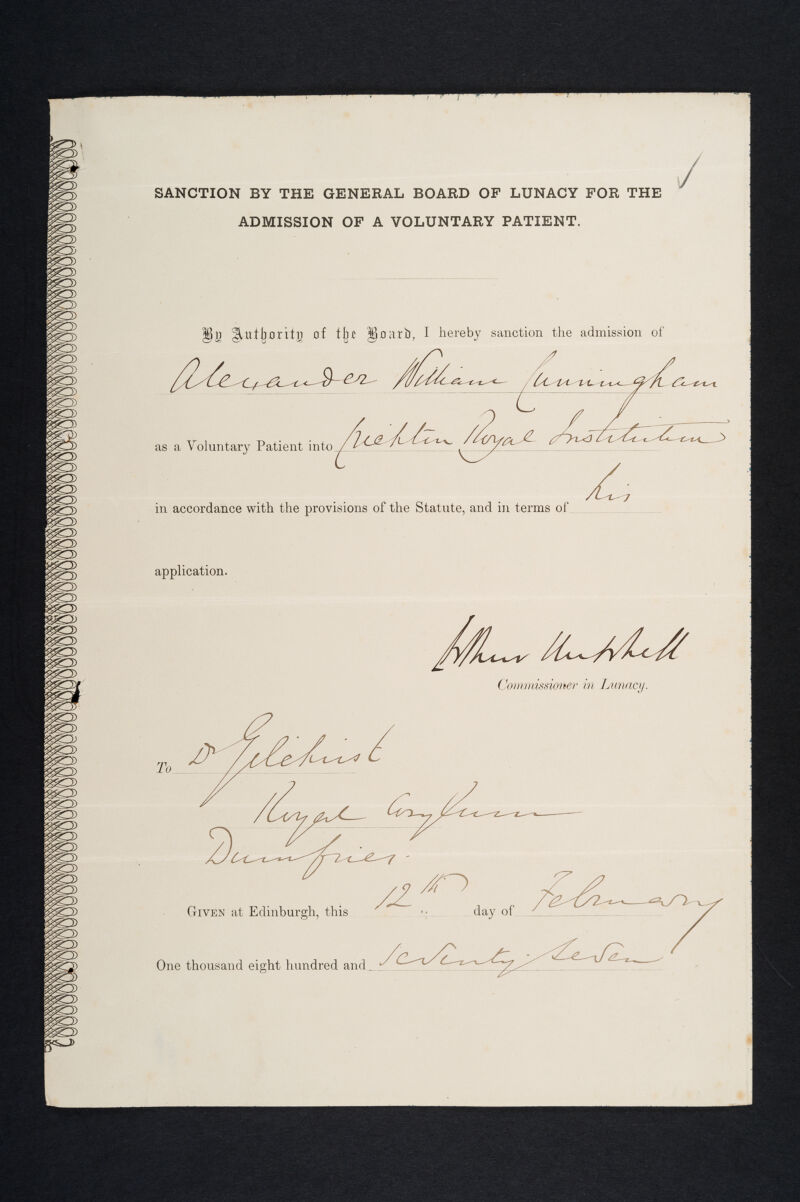 SANCTION BY THE GENERAL BOARD OF LUNACY FOR THE
ADMISSION OF A VOLUNTARY PATIENT.
By Authority of the Board, I hereby sanction the admission of
Alexander William Cunningham
as a Voluntary Patient into Crichton Royal Institution
in accordance with the provisions of the Statute, and in terms of his
application.
Arthur Mitchell
Commissioner in Lunacy.
To Dr Gilchrist
Royal Asylum
Dumfries.
GIVEN at Edinburgh, this 12th day of February
One thousand eight hundred and seventy-seven